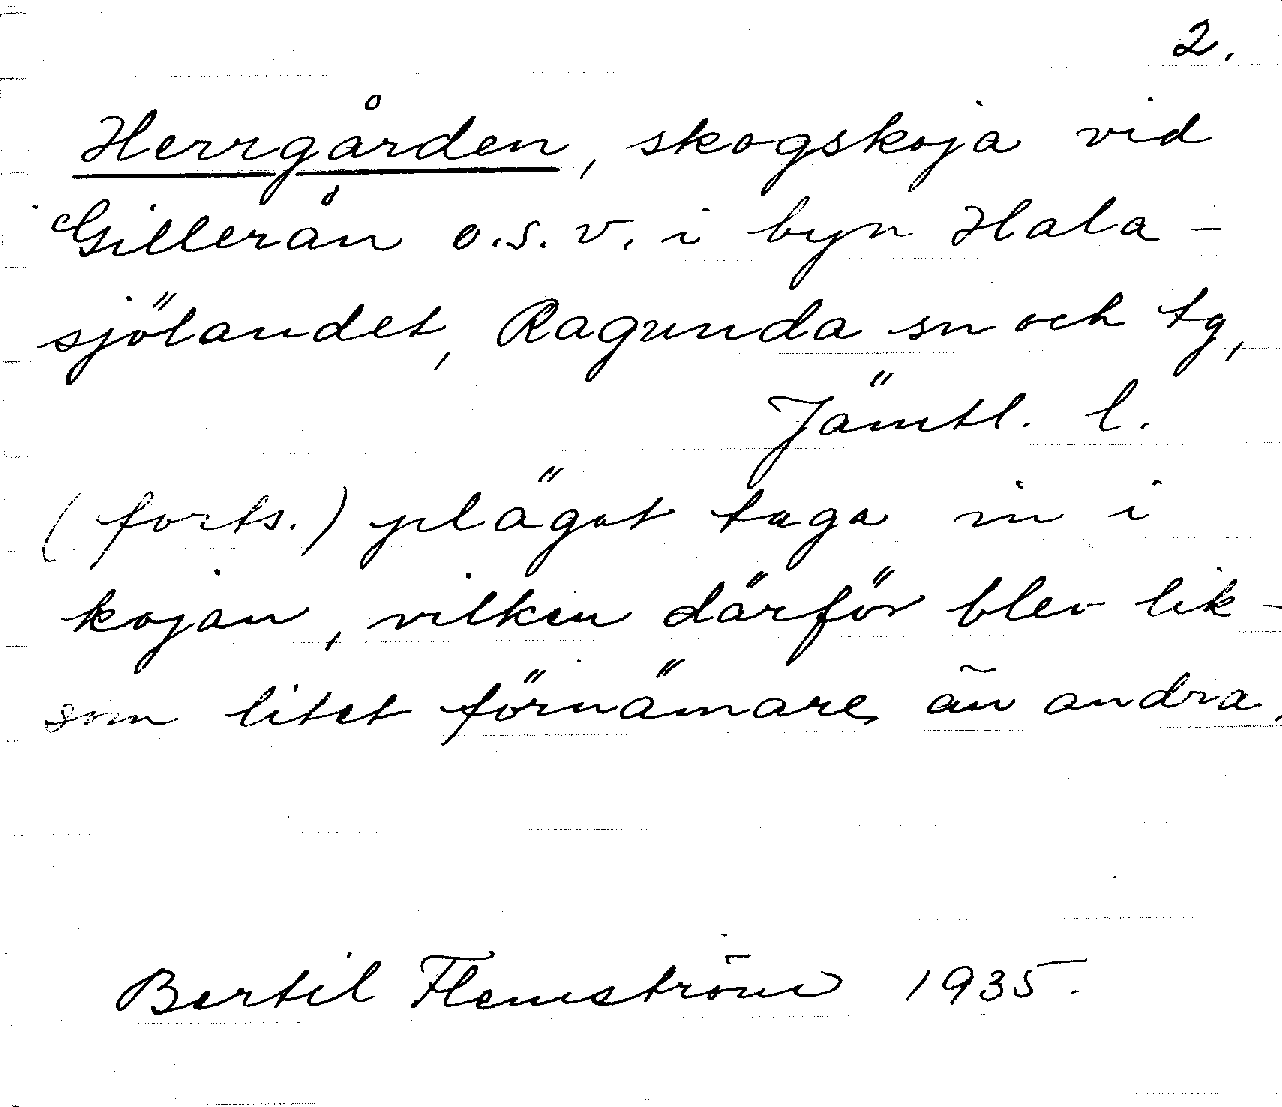 2.
Herrgården, skogskoja vid
Gillerån o.s.v. i byn Hala-
sjölandet, Ragunda sn och tg,
Jämtl. l.
(forts.) plägat taga in i
kojan, vilken därför blev lik-
som litet förnämare än andra.
Bertil Flemström 1935.